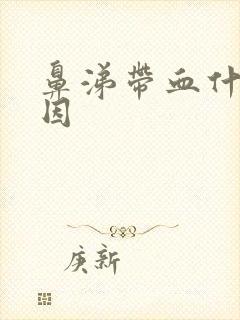 鼻涕带血什
因
庚新